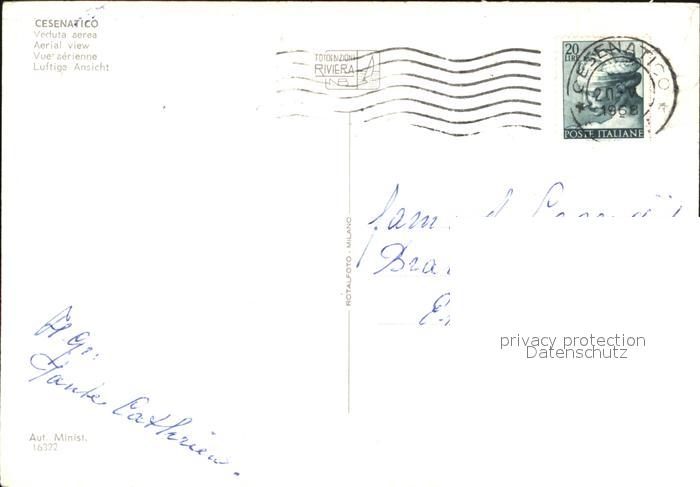 CESENATICO
Veduta aerea
Aerial view
Vue aérienne
Luftige Ansicht
FOTOEDIZIONI
RIVIERA
20
LIRE
POSTE ITALIANE
CESENATICO
1968
ROTALFOTO - MILANO
Fam
Bra
privacy protection
Datenschutz
H. Gr.
Tante Cathrien.
Aut. Minist.
16322